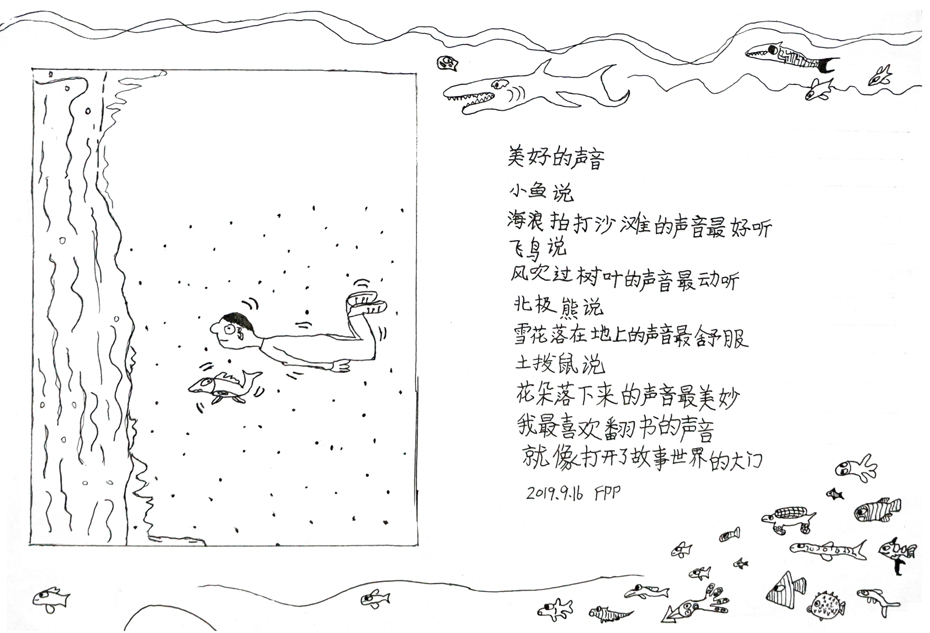 美好的声音
小鱼说
海浪拍打沙滩的声音最好听
飞鸟说
风吹过树叶的声音最动听
北极熊说
雪花落在地上的声音最舒服
土拨鼠说
花朵落下来的声音最美妙
我最喜欢翻书的声音
就像打开了故事世界的大门
2019.9.16 FPP